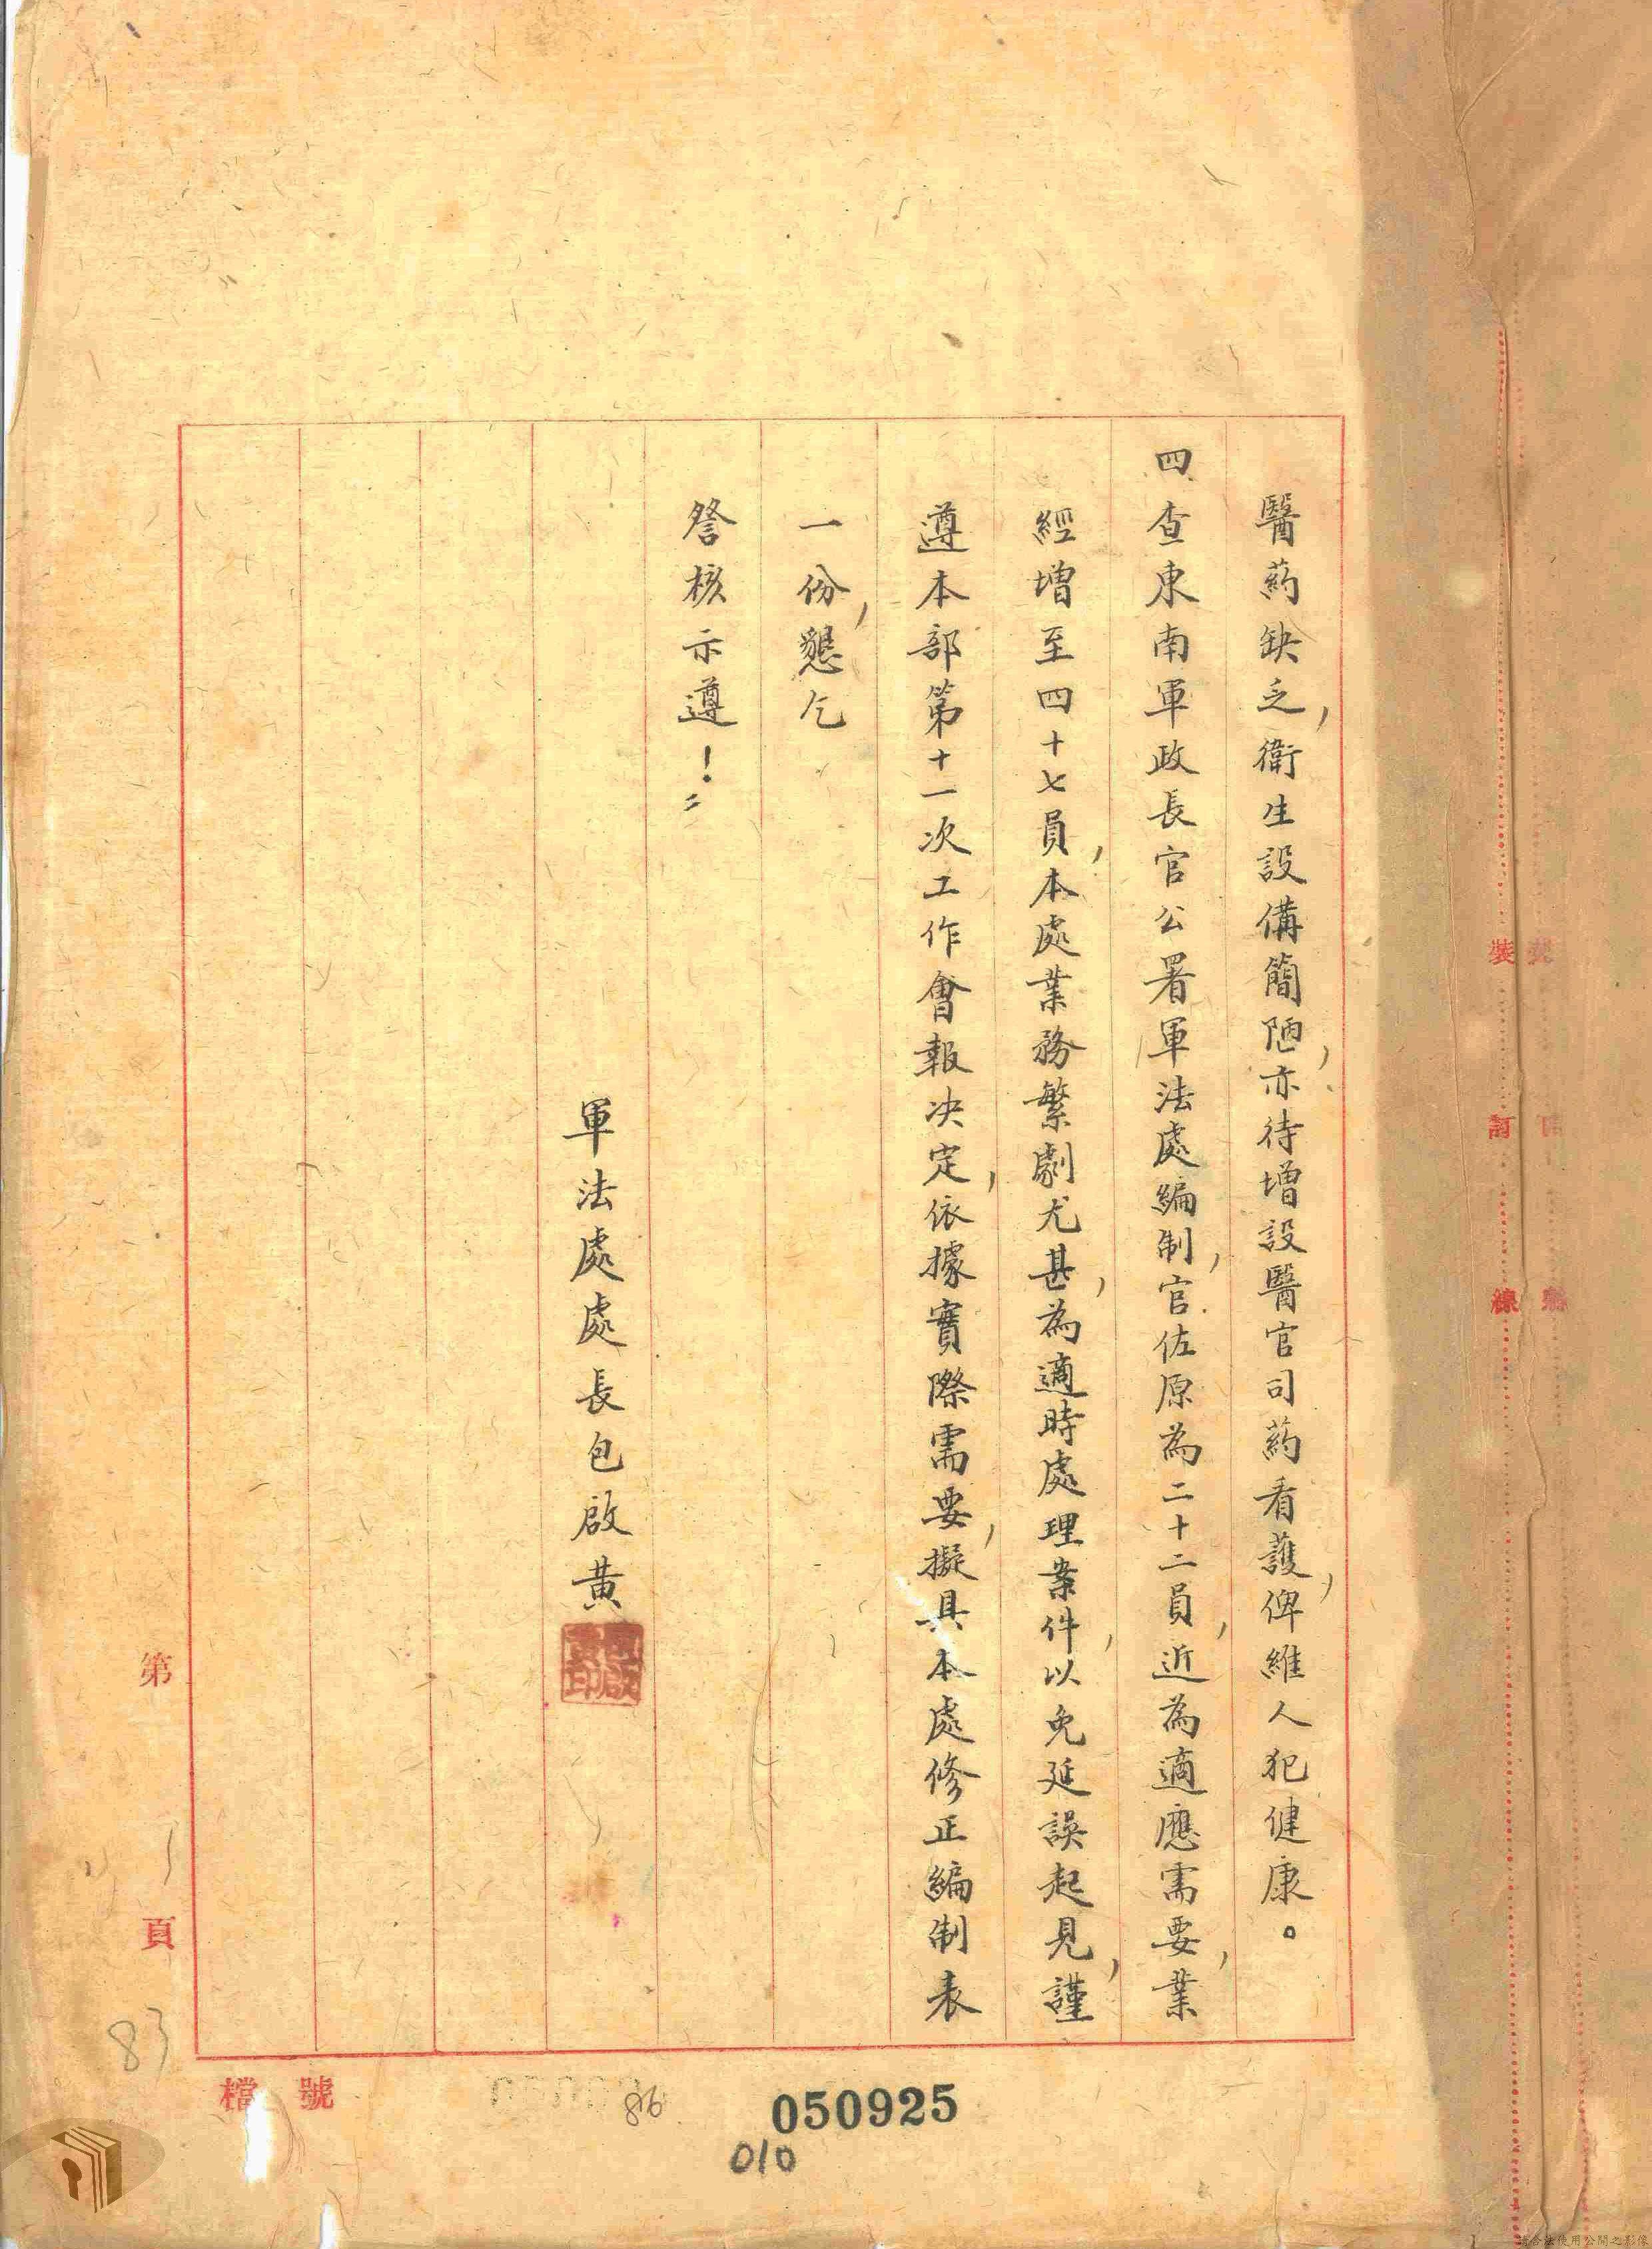 醫葯缺乏，衛生設備簡陋，亦待增設醫官司葯看護，俾維人犯健康。
四、查東南軍政長官公署軍法處編制，官佐原為二十二員，近為適應需要，業
經增至四十七員，本處業務繁劇尤甚，為適時處理案件，以免延誤起見，謹
遵本部第十一次工作會報决定，依據實際需要，擬具本處修正編制表
一份，懇乞
詧核示遵！〃
軍法處處長包啟黃
裝
訂
線
第
頁
83
檔 號
86
050925
010
請合法使用公開之影像